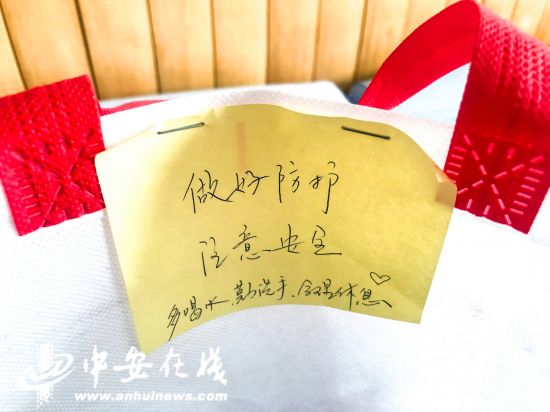 做好防护
注意安全
多喝水、勤洗手、合理休息♡
中安在线
www.anhuinews.com